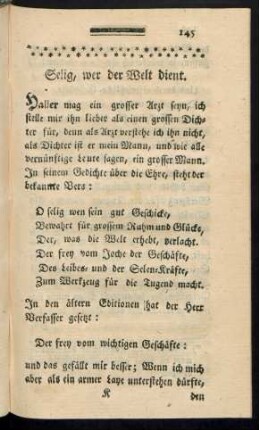 145
Selig, wer der Welt dient.
Haller mag ein grosser Arzt seyn, ich
stelle mir ihn lieber als einen grossen Dich-
ter für, denn als Arzt verstehe ich ihn nicht,
als Dichter ist er mein Mann, und wie alle
vernünftige Leute sagen, ein grosser Mann.
In seinem Gedichte über die Ehre, steht der
bekannte Vers:
O selig wen sein gut Geschicke,
Bewahrt für grossem Ruhm und Glücke,
Der, was die Welt erhebt, verlacht.
Der frey vom Joche der Geschäfte,
Des Leibes und der Seelen-Kräfte,
Zum Werkzeug für die Tugend macht.
In den ältern Editionen hat der Herr
Verfasser gesetzt:
Der frey vom wichtigen Geschäfte:
und das gefällt mir besser; Wenn ich mich
aber als ein armer Laye unterstehen dürfte,
K den